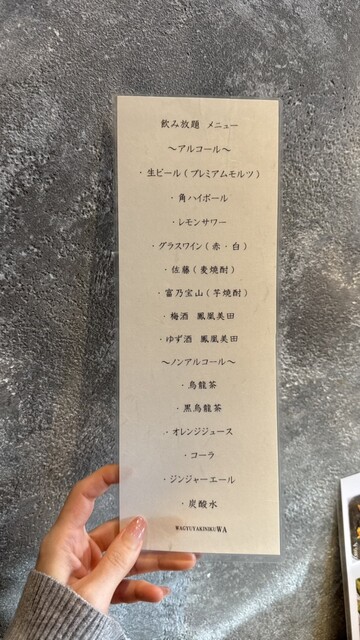 飲み放題 メニュー
〜アルコール〜
・生ビール(プレミアムモルツ)
・角ハイボール
・レモンサワー
・グラスワイン(赤・白)
・佐藤(麦焼酎)
・富乃宝山(芋焼酎)
・梅酒 鳳凰美田
・ゆず酒 鳳凰美田
〜ノンアルコール〜
・烏龍茶
・黒烏龍茶
・オレンジジュース
・コーラ
・ジンジャーエール
・炭酸水
WAGYUYAKINIKUWA